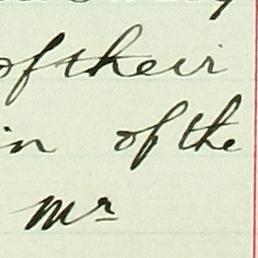 of their
in of the
Mr